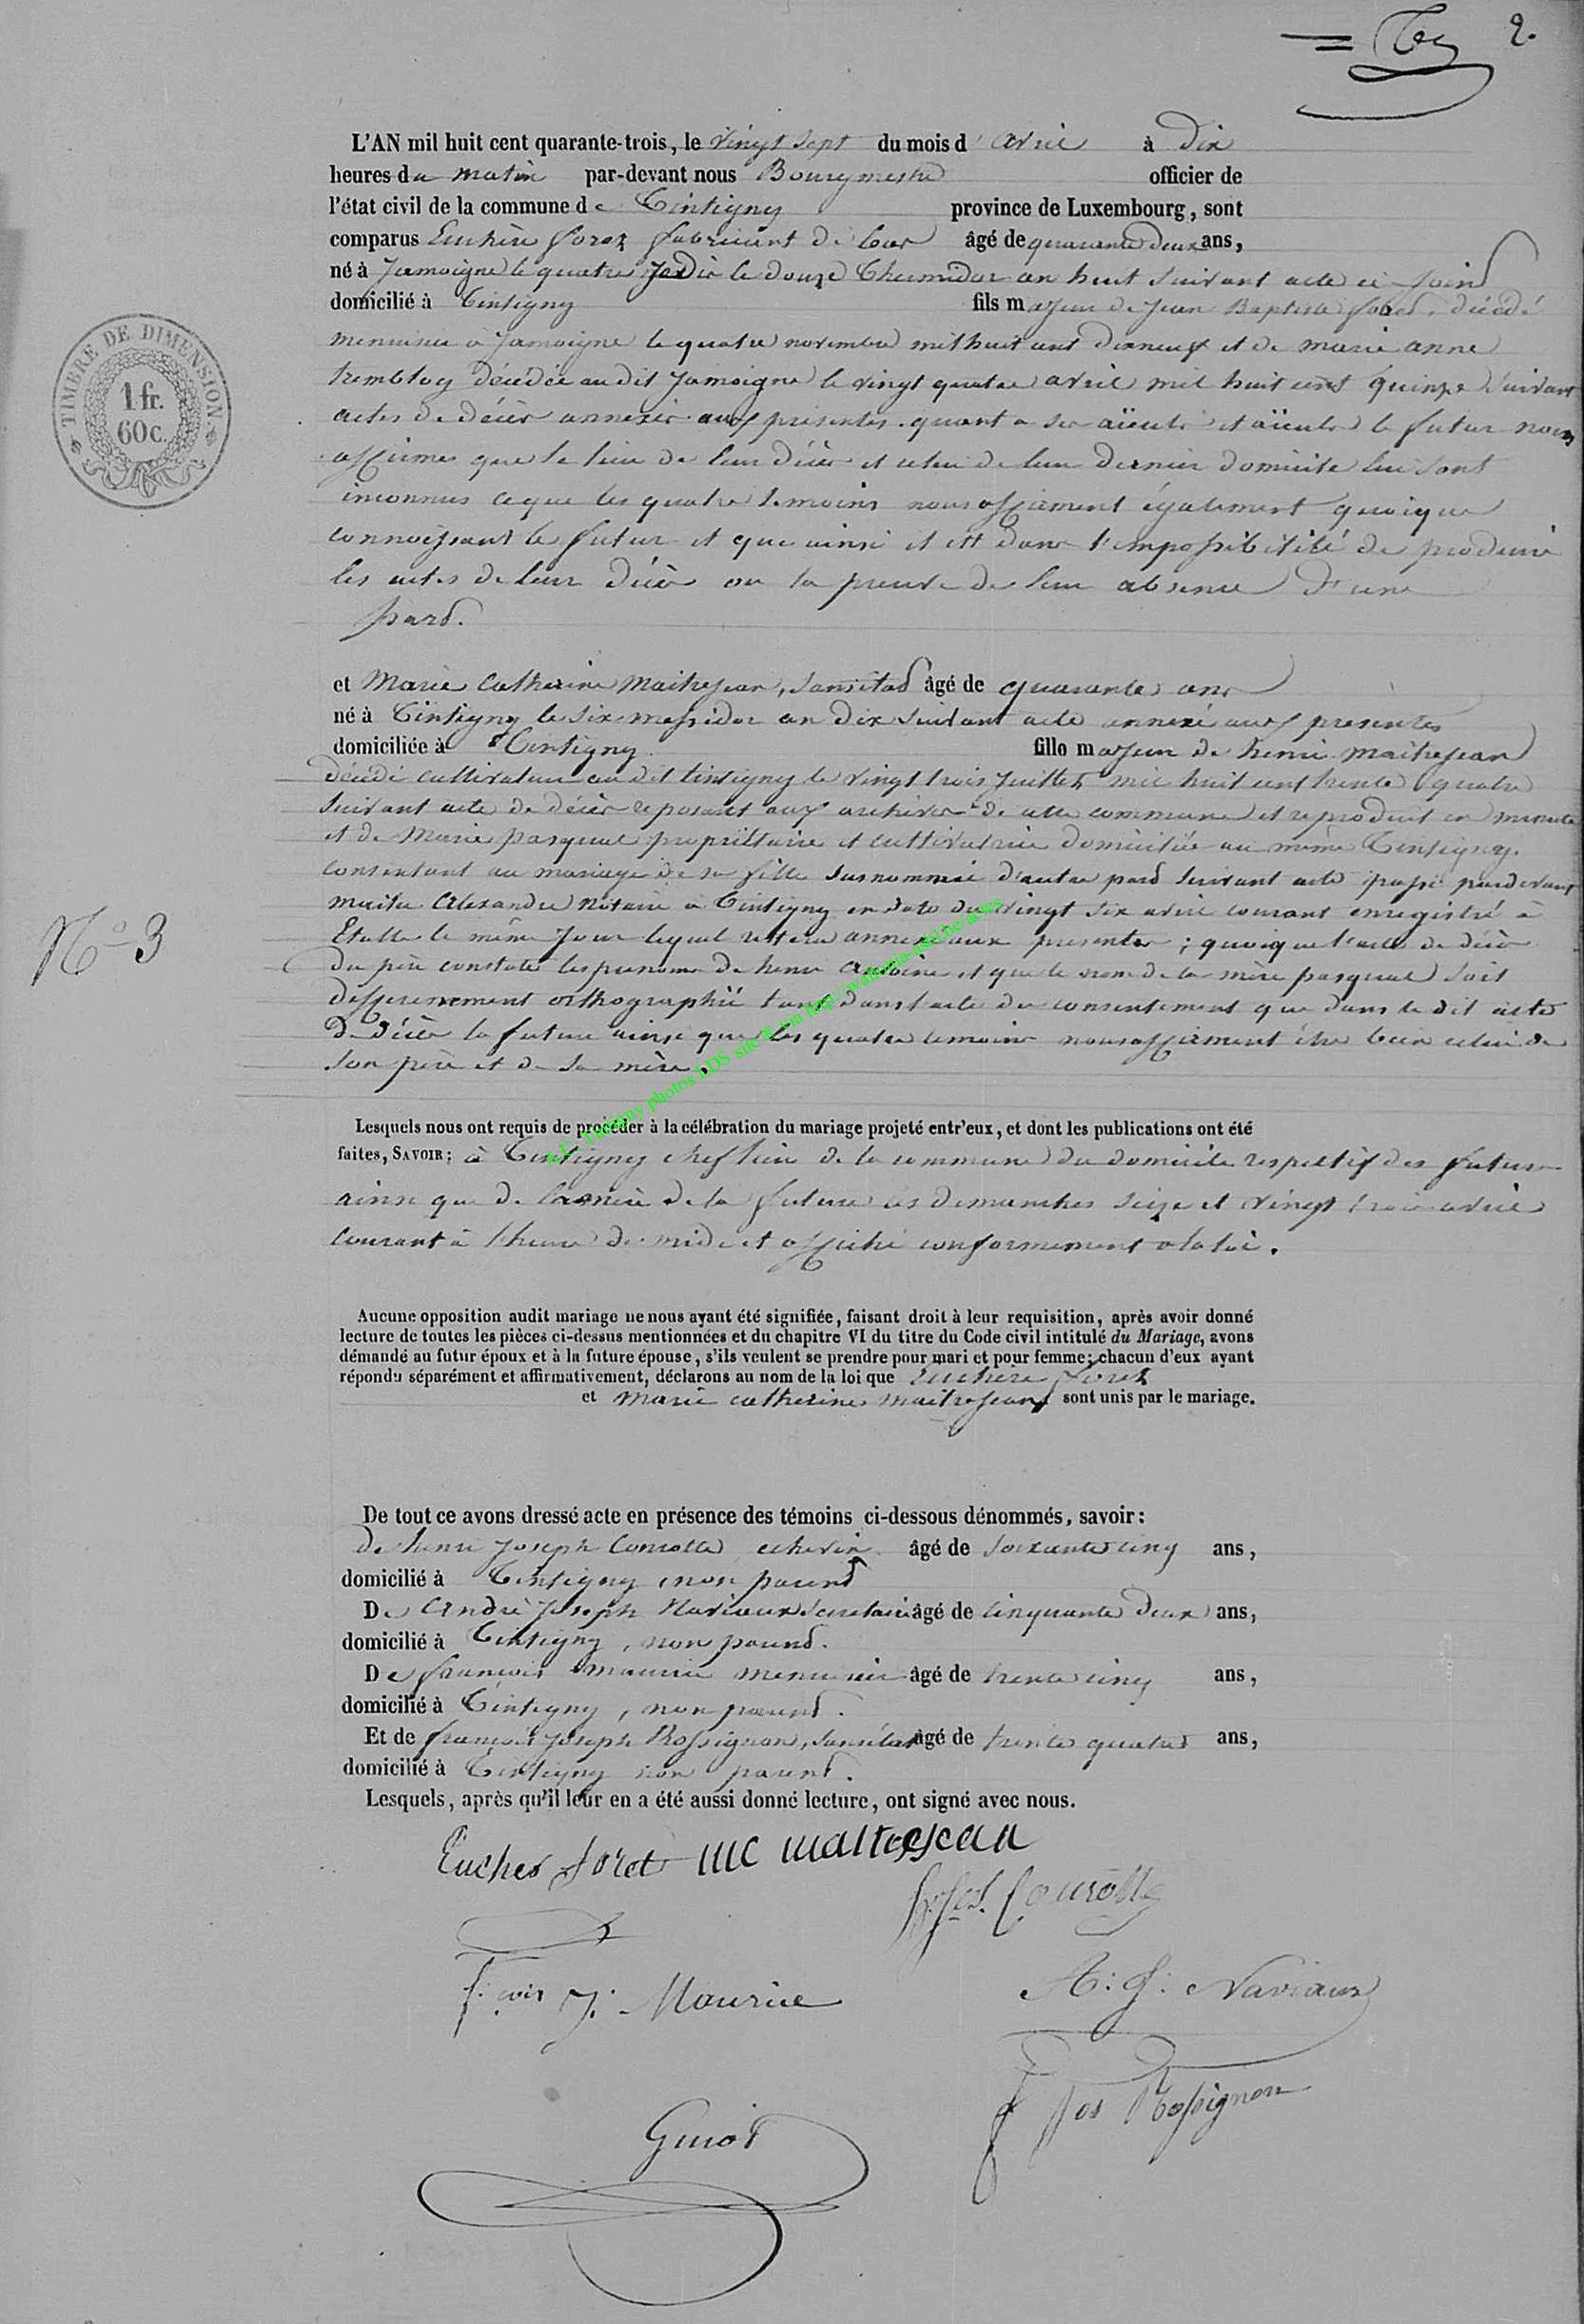 2.
L'AN mil huit cent quarante-trois, le vingt sept du mois d'avril à dix
heures du matin par-devant nous Bourgmestre officier de
l'état civil de la commune de Tintigny province de Luxembourg, sont
comparus Euchère foret fabricant de bas âgé de quarante deux ans,
né à Jamoigne le quatre jadis le douze Thermidor an huit suivant acte ci joint
domicilié à Tintigny fils majeur de Jean Baptiste foret, décédé
menuisier à Jamoigne le quatre novembre mil huit cent dixneuf et de marie anne
trembloy décédée audit Jamoigne le vingt quatre avril mil huit cent quinze suivant
actes de décès annexés aux présentes. quant a ses aïeuls et aïeules le futur nous
affirme que le lieu de leur décès et celui de leur dernier domicile lui sont
inconnus ce que les quatre temoins nous affirment également quoique
connoissant le futur et que ainsi il est dans l'impossibilité de produire
les actes de leur décès ou la preuve de leur absence D'une
part.
et Marie Catherine Maitrejean, sans état âgé de quarante ans
né à Tintigny le six messidor an dix suivant acte annexé aux presentes
domiciliée à Tintigny fille majeure de henri maitrejean
décédé cultivateur au dit tintigny le vingt trois juillet mil huit cent trente quatre
suivant acte de décès reposant aux archives de cette commune et reproduit en minute
et de Marie pasqual propriétaire et cultivatrice domiciliée au même Tintigny.
consentant au mariage de sa fille susnommée d'autre part suivant acte passé pardevant
maitre Alexandre Notaire à Tintigny en date du vingt six avril courant enregistré à
Etalle le même jour lequel restera annexé aux presentes ; quoique l'acte de décès
du père constate les prenoms de henri antoine et que le nom de la mère pasqual soit
differemment orthographié tant dans l'acte de consentement que dans le dit acte
de décès la future ainsi que les quatre temoins nous affirment être bien celui de
son père et de sa mère.
A.C. Tintigny photos EDS site @ via http://wallonia-asbl.be/actes
N° 3
TIMBRE DE DIMENSION
1 fr.
60 c.
Lesquels nous ont requis de procéder à la célébration du mariage projeté entr'eux, et dont les publications ont été
faites, SAVOIR: à Tintigny chef lieu de la commune du domicile respectif des futurs
ainsi que de la mère de la future les dimanches seize et vingt trois avril
courant à l'heure de midi et affiché conformement a la loi.
Aucune opposition audit mariage ne nous ayant été signifiée, faisant droit à leur requisition, après avoir donné
lecture de toutes les pièces ci-dessus mentionnées et du chapitre VI du titre du Code civil intitulé du Mariage, avons
démandé au futur époux et à la future épouse, s'ils veulent se prendre pour mari et pour femme; chacun d'eux ayant
répondu séparément et affirmativement, déclarons au nom de la loi que Euchère foret
et marie catherine maitrejean sont unis par le mariage.
De tout ce avons dressé acte en présence des témoins ci-dessous dénommés, savoir:
De henri joseph Courotte echevin âgé de soixante cinq ans,
domicilié à Tintigny, non parent
De André Joseph Naviaux secretaire âgé de cinquante deux ans,
domicilié à Tintigny, non parent.
De françois maurice menuisier âgé de trente cinq ans,
domicilié à Tintigny, non parent.
Et de françois joseph Rossignon, sans état âgé de trente quatre ans,
domicilié à Tintigny non parent.
Lesquels, après qu'il leur en a été aussi donné lecture, ont signé avec nous.
Eucher foret MC maitrejean
h. jos. Courotte
f.çois j. Maurice
A: J: Naviaux
f Jos Rossignon
Guiot